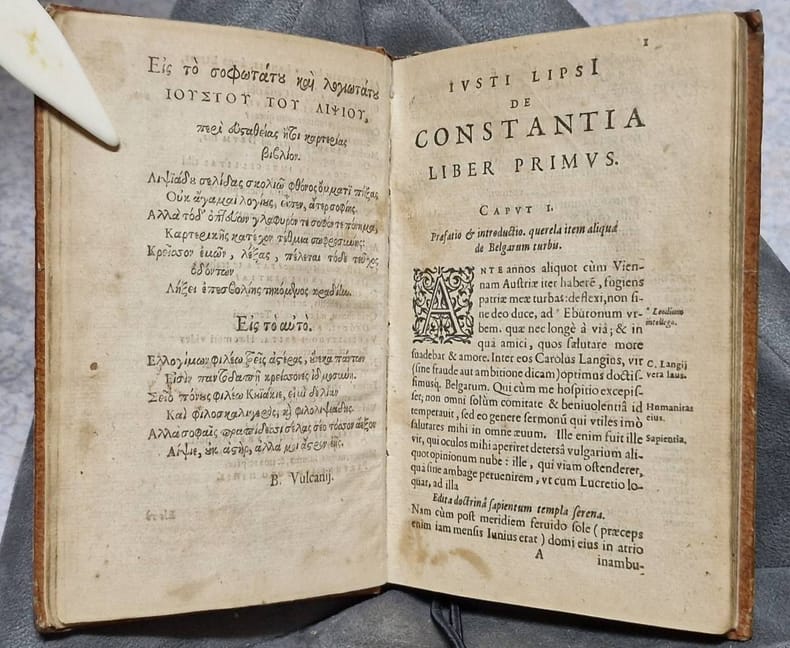 Εἰς τὸ σοφωτάτου καὶ λογιωτάτου
ΙΟΥΣΤΟΥ ΤΟΥ ΛΙΨΙΟΥ,
περὶ εὐσταθείας ἤτοι καρτερίας
βιβλίον.
σελίδας σκολιῷ φθόνος ὄμματι
Οὐκ ἄγαμαι λογίους, εἶπεν, ἄτερ σοφίης.
Ἀλλὰ τόδ'
Καρτερικῆς κατέχον τέθμια σωφροσύνης:
Κρεῖσσον ἐμῶν, λέξας, πέλεται τόδε τεῦχος
ὀδόντων
Λήξει ἐπεσβολίης κραδίην.
Εἰς τὸ αὐτό.
Ἐλλογίμων φιλέω ἀστέρας, οὕνεκα πάντων
Εἰσὶν
Σεῖο πόνους φιλέω
Καὶ φιλοσκαλιγερὸς, καὶ φιλολιψιάδης.
Ἀλλὰ σοφαῖς πραπίδεσσι σέλας σέο τόσσον
Λίψιε, οὐκ ἀστὴρ, ἀλλά μοι ἄστρον ἔῃς.
B. Vulcanij.
1
IVSTI LIPSI
DE
CONSTANTIA
LIBER PRIMVS.
CAPVT I.
Præfatio & introductio. querela item aliqua
de Belgarum turbis.
ANTE annos aliquot cùm Vien-
nam Austriæ iter haberē, fugiens
patriæ meæ turbas: deflexi, non si-
ne deo duce, ad * Eburonum vr-
bem. quæ nec longè à viâ; & in
quâ amici, quos salutare more
suadebat & amore. Inter eos Carolus Langius, vir
(sine fraude aut ambitione dicam) optimus doctis-
simusq́. Belgarum. Qui cùm me hospitio excepis-
set; non omni solùm comitate & beniuolentiâ id
temperauit, sed eo genere sermonū qui vtiles imò
salutares mihi in omne æuum. Ille enim fuit ille
vir, qui oculos mihi aperiret detersâ vulgarium ali-
quot opinionum nube: ille, qui viam ostenderet,
quâ sine ambage peruenirem, vt cum Lucretio lo-
quar, ad illa
Edita doctrinâ sapientum templa serena.
Nam cùm post meridiem feruido sole (præceps
enim iam mensis Iunius erat) domi eius in atrio
A inambu-
* Leodium
intellego.
C. Langij
vera laus.
Humanitas
eius.
Sapientia.